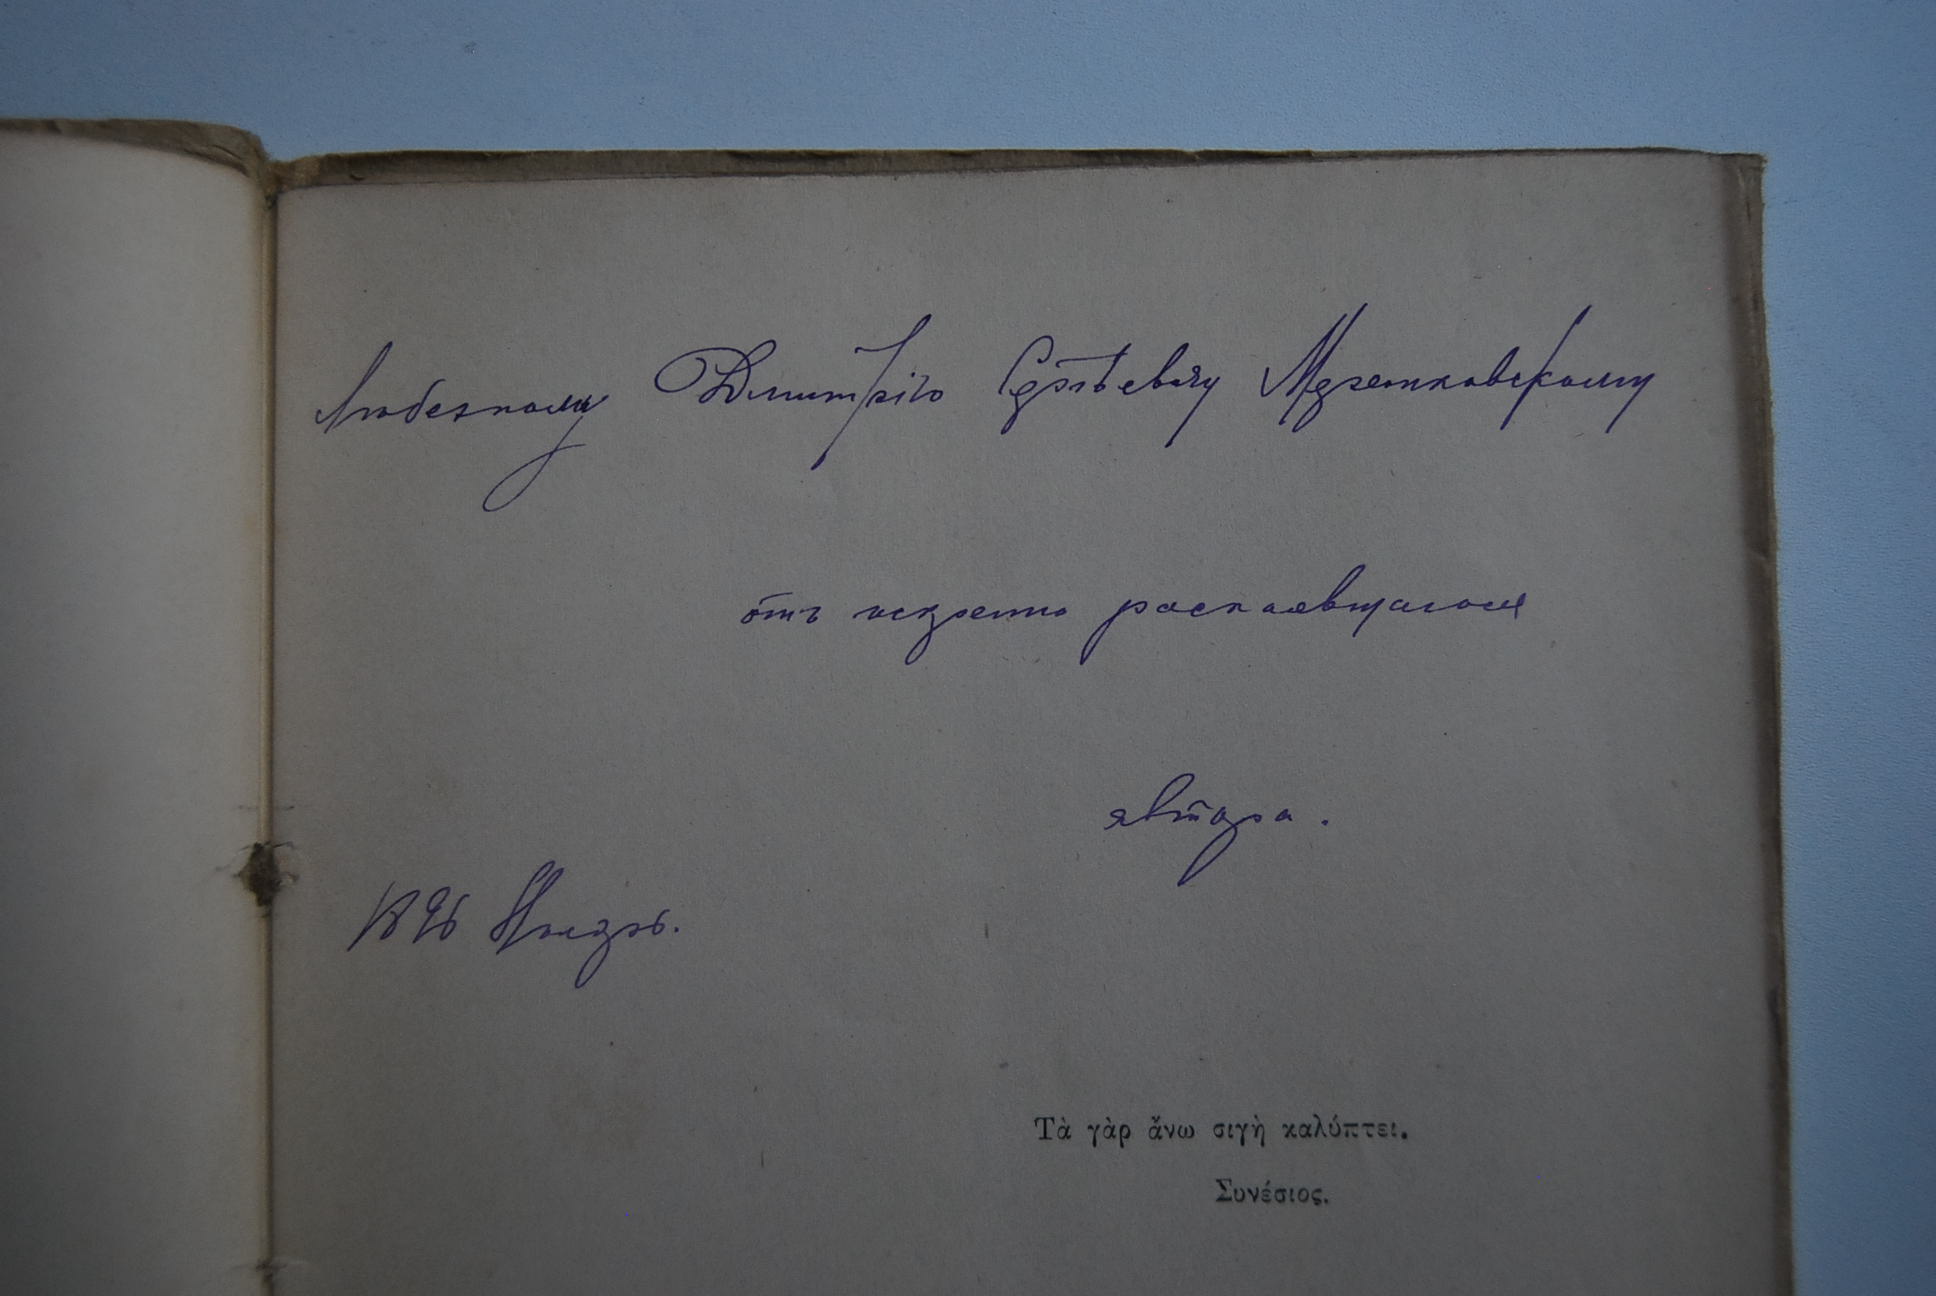 Любезному Дмитрію Сергѣевичу Мережковскому
отъ искренно раскаявшагося
автора.
1896 Ноябрь.
Τὰ γὰρ ἄνω σιγὴ καλύπτει.
Συνέσιος.